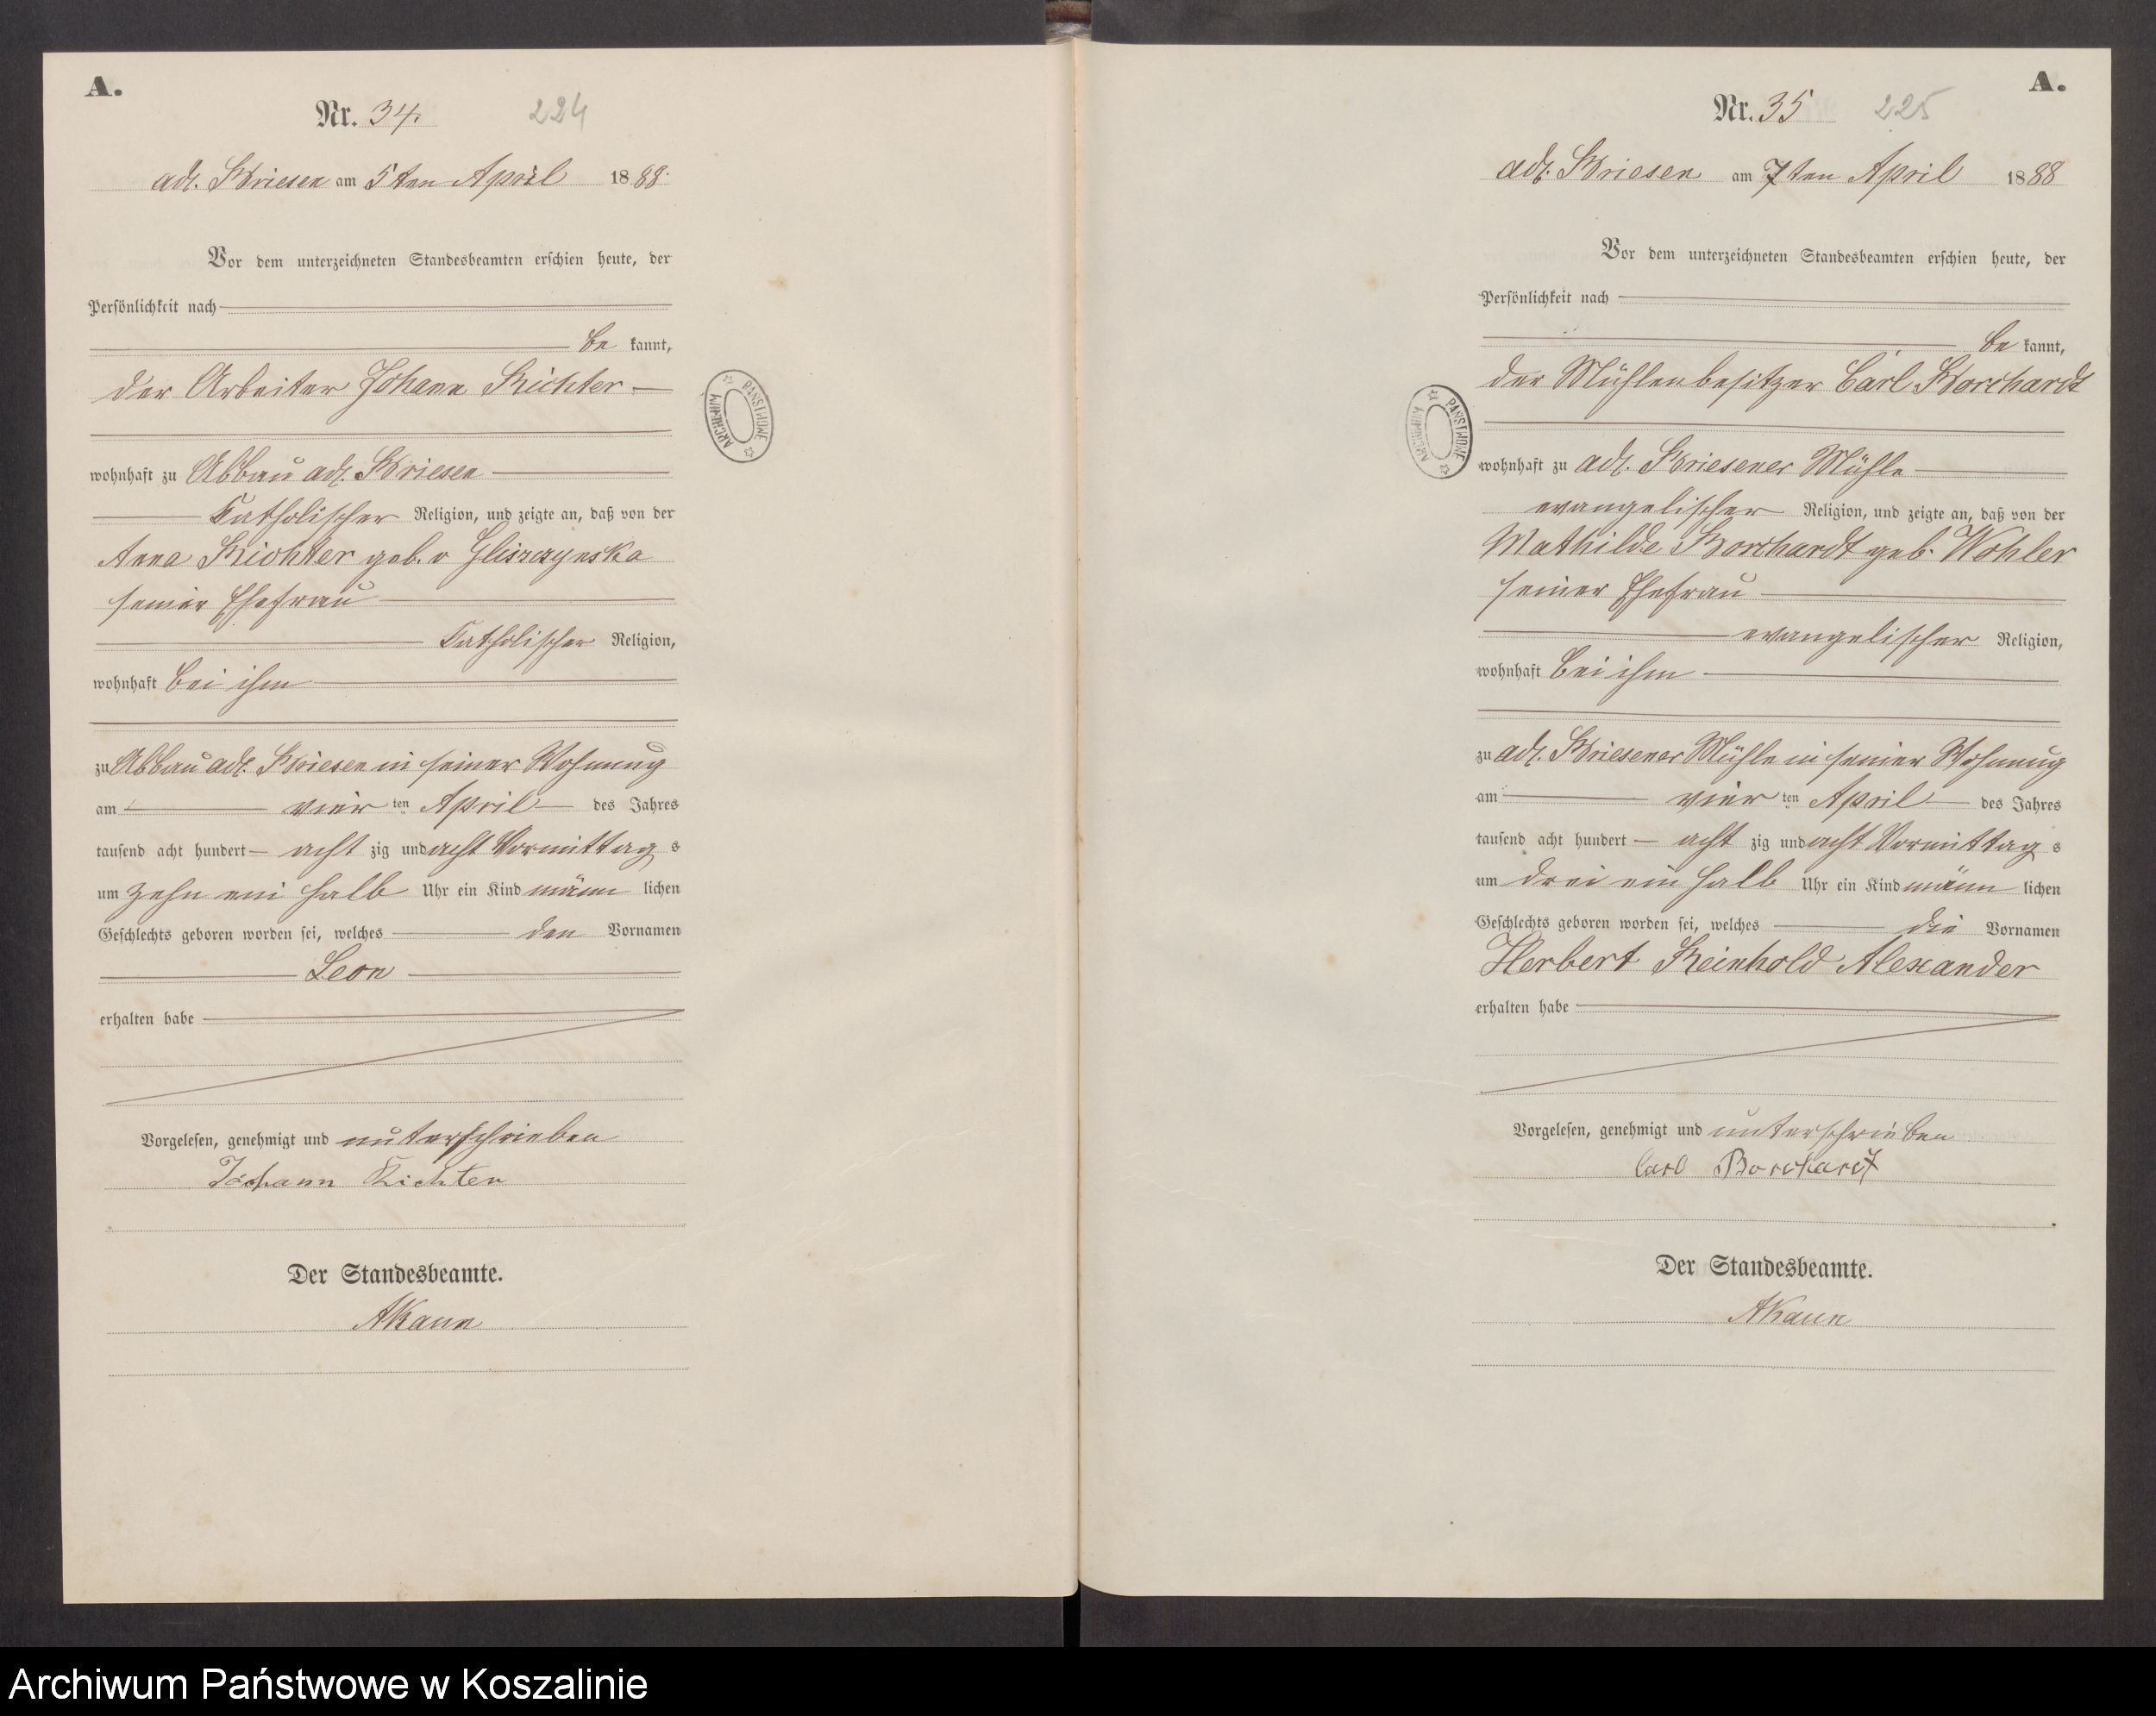 A.
Nr. 34. 224
adl. Briesen am 5ten April 1888.
Vor dem unterzeichneten Standesbeamten erschien heute, der
Persönlichkeit nach
be kannt,
der Arbeiter Johann Richter
wohnhaft zu Abbau adl. Briesen
katholischer Religion, und zeigte an, daß von der
Anna Richter geb. v Gliszczynska
seiner Ehefrau
katholischer Religion,
wohnhaft bei ihm
zu Abbau adl. Briesen in seiner Wohnung
am vier ten April des Jahres
tausend acht hundert acht zig und acht Vormittag s
um zehn ein halb Uhr ein Kind männ lichen
Geschlechts geboren worden sei, welches den Vornamen
Leon
erhalten habe
Vorgelesen, genehmigt und unterschrieben
Johann Richter
Der Standesbeamte.
AKaun
ARCHIWUM PAŃSTWOWE
A.
Nr. 35 225
adl. Briesen am 7ten April 1888
Vor dem unterzeichneten Standesbeamten erschien heute, der
Persönlichkeit nach
be kannt,
der Mühlenbesitzer Carl Borchardt
wohnhaft zu adl. Briesener Mühle
evangelischer Religion, und zeigte an, daß von der
Mathilde Borchardt geb. Wohler
seiner Ehefrau
evangelischer Religion,
wohnhaft bei ihm
zu adl. Briesener Mühle in seiner Wohnung
am vier ten April des Jahres
tausend acht hundert acht zig und acht Vormittag s
um drei ein halb Uhr ein Kind männ lichen
Geschlechts geboren worden sei, welches die Vornamen
Herbert Reinhold Alexander
erhalten habe
Vorgelesen, genehmigt und unterschrieben
Carl Borchardt
Der Standesbeamte.
AKaun
ARCHIWUM PAŃSTWOWE
Archiwum Państwowe w Koszalinie